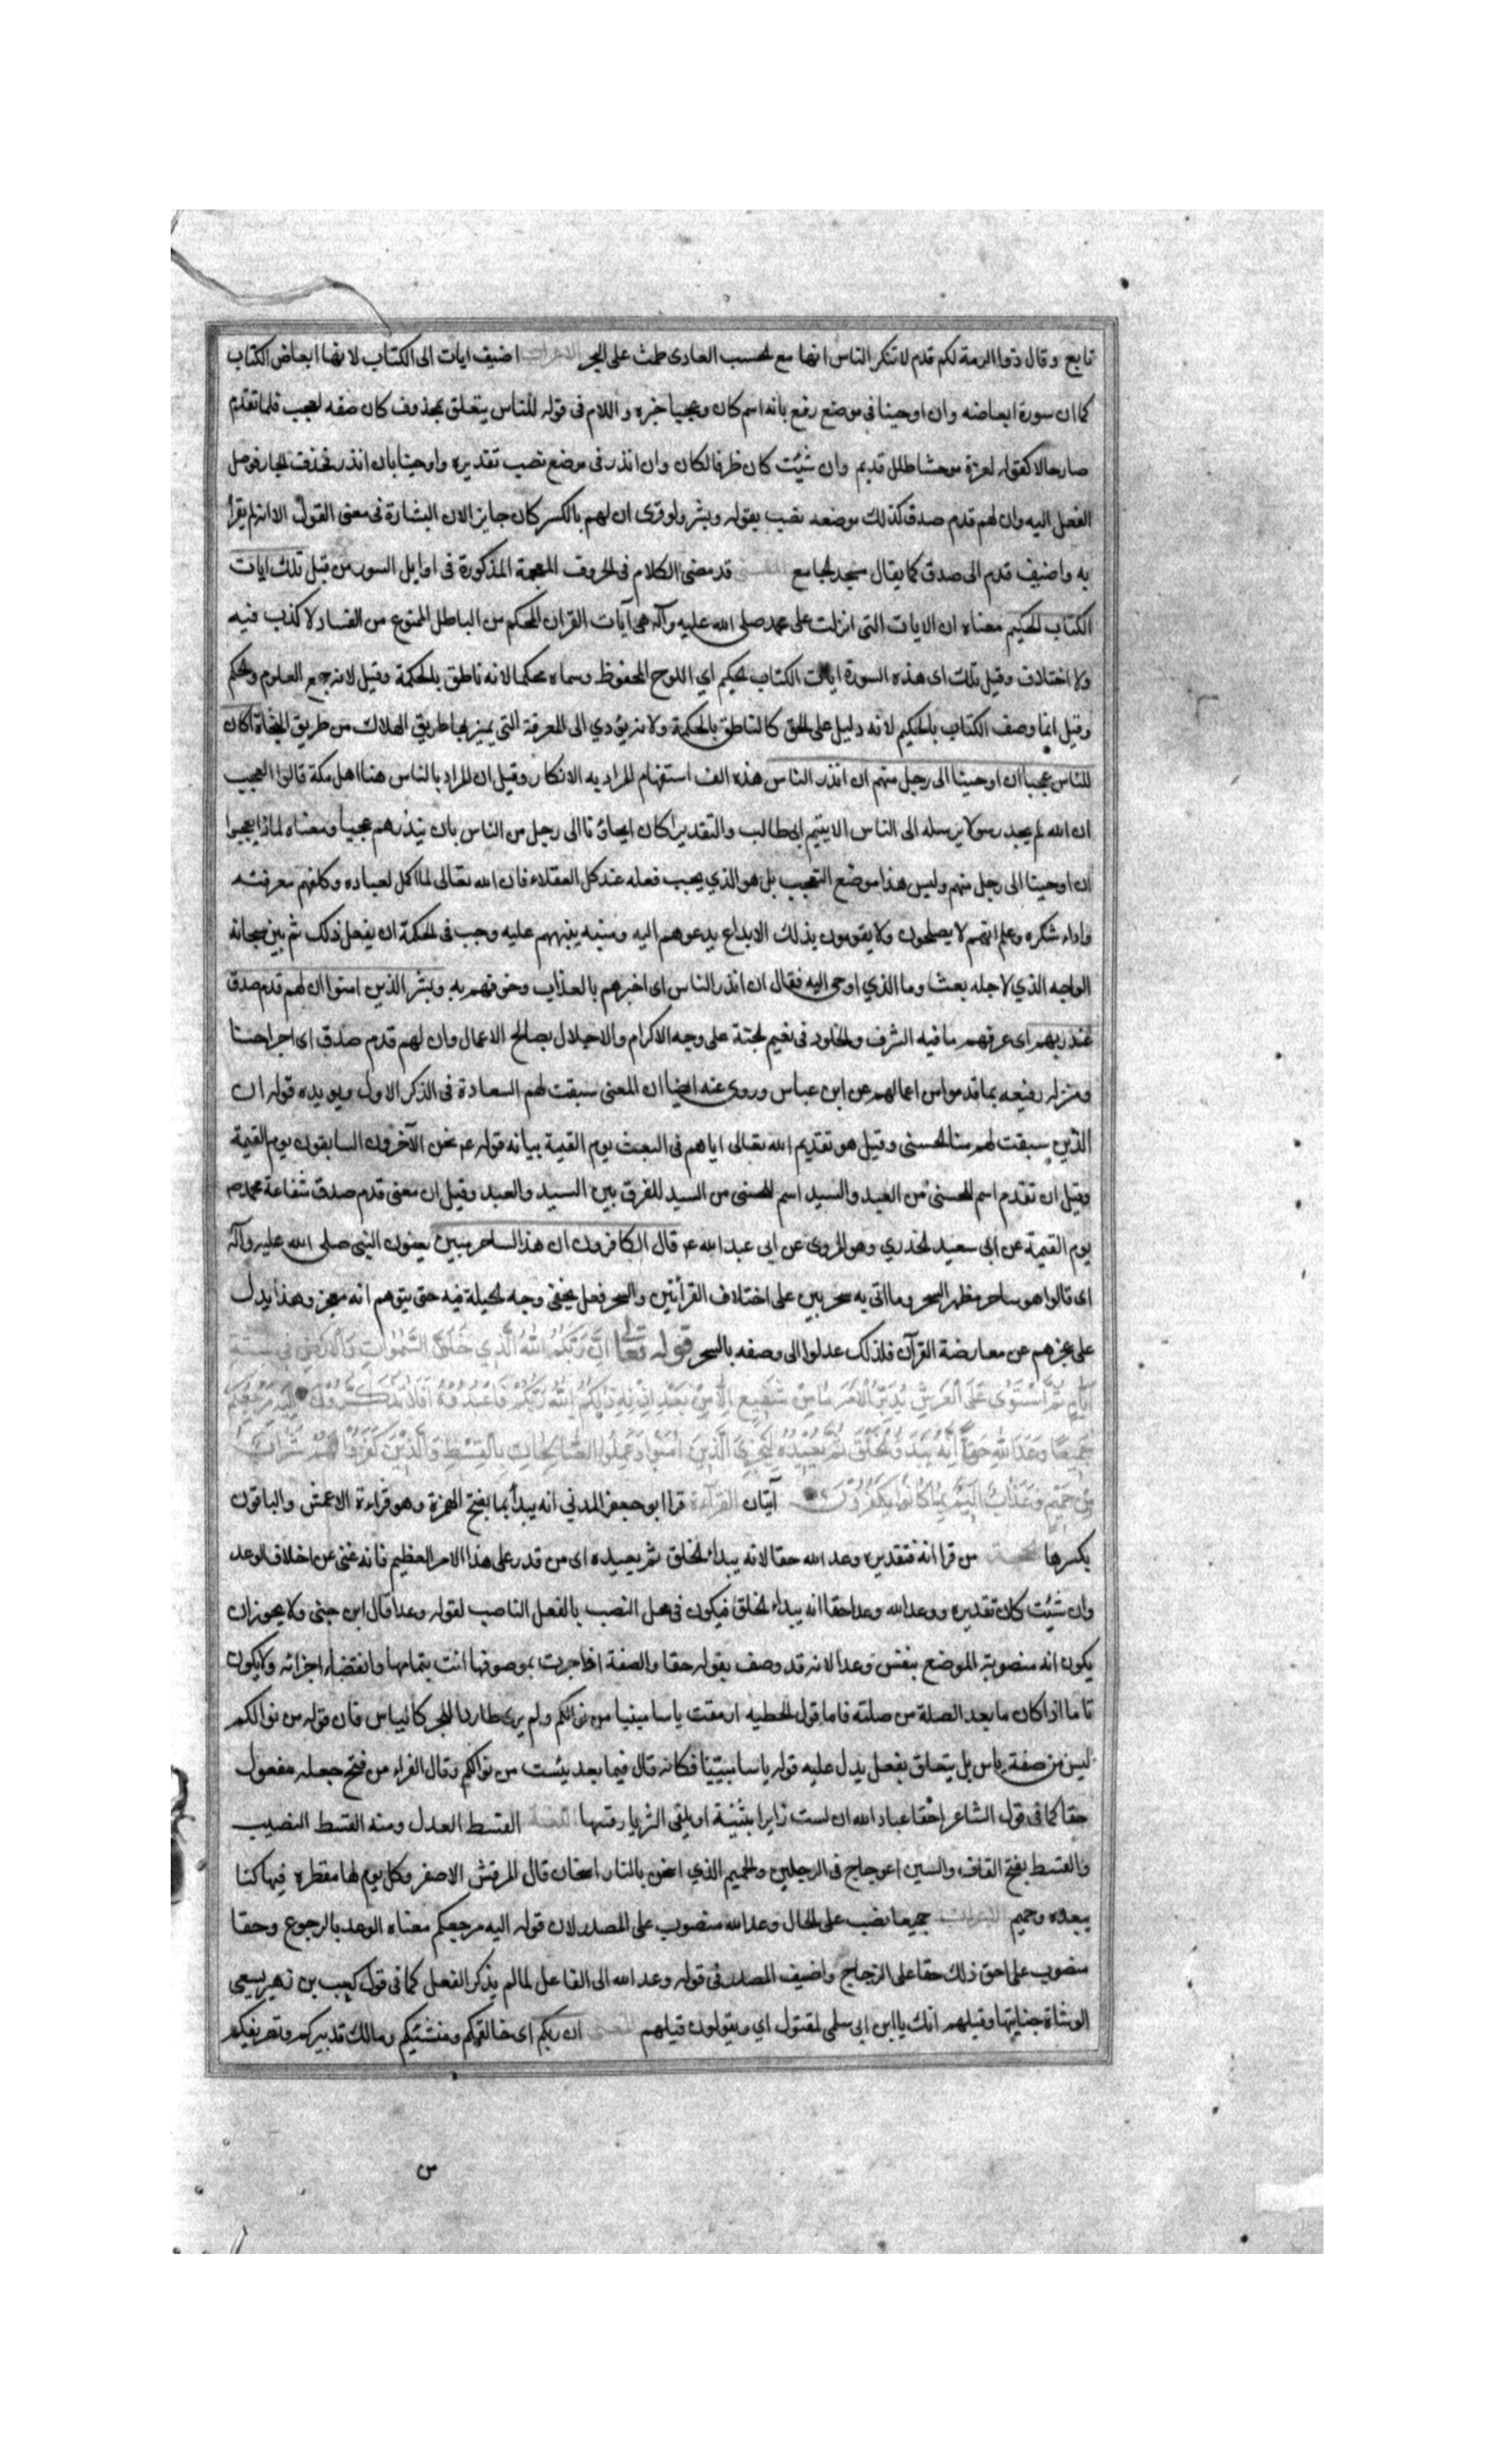 تابع وقال ذوا الرمة لكم قدم لا تنكر الناس انها مع الحسب العادى طمت على البحر الاعراب اضيف ايات الى الكتاب لانها ابعاض الكتاب
كما ان سورة ابعاضه وان اوحينا فى موضع رفع بانه اسم كان وعجبا خبره و اللام فى قوله للناس يتعلق بمحذوف كان صفه لعجب فلما تقدم
صار حالا كقوله لعزة موحشا طلل قديم وان شئت كان ظرفا لكان وان انذر فى موضع نصب تقديره واوحينا بان انذر فحذف الجار فوصل
الفعل اليه وان لهم قدم صدق كذلك موضعه نصب بقوله وبشر ولو قرى ان لهم بالكسر كان جايزا لان البشارة فى معنى القول الا انه لم يقرا
به واضيف قدم الى صدق كما يقال مسجد الجامع المعنى قد مضى الكلام فى الحروف المعجمة المذكورة فى اوايل السور من قبل تلك ايات
الكتاب الحكيم معناه ان الايات التى انزلت على محمد صلى الله عليه وآله هى آيات القران المحكم من الباطل الممنوع من الفساد لا كذب فيه
ولا اختلاف وقيل تلك اى هذه السورة ايات الكتاب الحكيم اي اللوح المحفوظ وسماه محكما لانه ناطق بالحكمة وقيل لانه جمع العلوم والحكم
وقيل انما وصف الكتاب بالحكيم لانه دليل على الحق كالناطق بالحكمة ولانه يؤدي الى المعرفة التى يميز بها طريق الهلاك من طريق النجاة اكان
للناس عجبا ان اوحينا الى رجل منهم ان انذر الناس هذه الف استفهام المراد به الانكار وقيل ان المراد بالناس هنا اهل مكة قالوا العجب
ان الله لم يجد رسولا يرسله الى الناس الا يتيم ابى طالب والتقدير اكان ايحاؤنا الى رجل من الناس بان ينذرهم عجبا ومعناه لماذا يعجبوا
ان اوحينا الى رجل منهم وليس هذا موضع التعجب بل هو الذي يجب فعله عند كل العقلاء فان الله تعالى لما اكمل لعباده وكلفهم معرفته
واداء شكره وعلم انهم لا يصلحون ولا يقومون بذلك الا بداع يدعوهم اليه ومنبه ينبههم عليه وجب فى الحكمة ان يفعل ذلك ثم بين سبحانه
الوجه الذي لاجله بعث وما الذي اوحى اليه فقال ان انذر الناس اى اخبرهم بالعذاب وخوفهم به وبشر الذين امنوا ان لهم قدم صدق
عند ربهم اى عرفهم ما فيه الشرف والخلود فى نعيم الجنة على وجه الاكرام والاجلال بصالح الاعمال وان لهم قدم صدق اى اجرا حسنا
ومنزله رفيعه بما قدموا من اعمالهم عن ابن عباس وروى عنه ايضا ان المعنى سبقت لهم السعادة فى الذكر الاول ويويده قوله ان
الذين سبقت لهم منا الحسنى وقيل هو تقديم الله تعالى اياهم فى البعث يوم القيمة بيانه قوله ع نحن الآخرون السابقون يوم القيمة
وقيل ان تقدم اسم للحسنى من العبد والسيد اسم للحسنى من السيد للفرق بين السيد والعبد وقيل ان معنى قدم صدق شفاعة محمد ص
يوم القيمة عن ابى سعيد الخدري وهو المروى عن ابى عبد الله ع قال الكافرون ان هذا لساحر مبين يعنون النبى صلى الله عليه وآله
اى قالوا هو ساحر مظهر السحر وما اتى به سحر مبين على اختلاف القرائتين والسحر فعل يخفى وجه الحيلة فيه حتى يتوهم انه معجز وهذا يدل
على عجزهم عن معارضة القرآن فلذلك عدلوا الى وصفه بالسحر قوله تعا إن ربكم الله الذي خلق السموات والارض فى ستة
ايام ثم استوى على العرش يدبر الامر ما من شفيع الا من بعد اذنه ذلكم الله ربكم فاعبدوه افلا تذكرون اليه مرجعكم
جميعا وعد الله حقا انه يبدؤ الخلق ثم يعيده ليجزي الذين امنوا وعملوا الصالحات بالقسط والذين كفروا لهم شراب
من حميم وعذاب اليم بما كانوا يكفرون آيتان القراءة قرا ابو جعفر المدني انه يبدأ بما بفتح الهمزة وهو قراءة الاعمش والباقون
بكسرها الحجة من قرا انه فتقديره وعد الله حقا لانه يبداء الخلق ثم يعيده اى من قدر على هذا الامر العظيم فانه غنى عن اخلاف الوعد
وان شئت كان تقديره ووعد الله وعدا حقا انه يبداء الخلق فيكون فى محل النصب بالفعل الناصب لقوله وعدا قال ابن جنى ولا يجوز ان
يكون انه منصوبة الموضع بنفس وعدا لانه قد وصف بقوله حقا والصفة اذا جرت بموصوفها اذنت بتمامها وانقضاء اجزائه ولا يكون
تاما اذا كان ما بعد الصلة من صلته فاما قول الحطيه ازمعت ياسا مبينا من نوالكم ولم يرى طاردا للحر كالياس فان قوله من نوالكم
ليس من صفة ياس بل يتعلق بفعل يدل عليه قوله ياسا مبينا فكانه قال فيما بعد يئست من نوالكم وقال الفراء من فتح جعله مفعول
حقا كما فى قول الشاعر احقا عباد الله ان لست زايرا بثينة او يلقى الثريا رقيبها اللغة القسط العدل ومنه القسط النصيب
والقسط بفتح القاف والسين اعوجاج فى الرجلين والحميم الذي اسخن بالنار اسخان قال المرقش الاصغر وكل يوم لها مقطره فيها كبا
معده وحميم الاعراب جميعا نصب على الحال وعد الله منصوب على المصدر لان قوله اليه مرجعكم معناه الوعد بالرجوع وحقا
منصوب على احق ذلك حقا على الزجاج واضيف المصدر فى قوله وعد الله الى الفاعل لما لم يذكر الفعل كما فى قول كعب بن زهير يسعى
الوشاة جنابيها وقيلهم انك يا ابن ابى سلمى لمقتول اي ويقولون قيلهم المعنى ان ربكم اى خالقكم ومنشئكم ومالك تدبيركم وتصريفكم